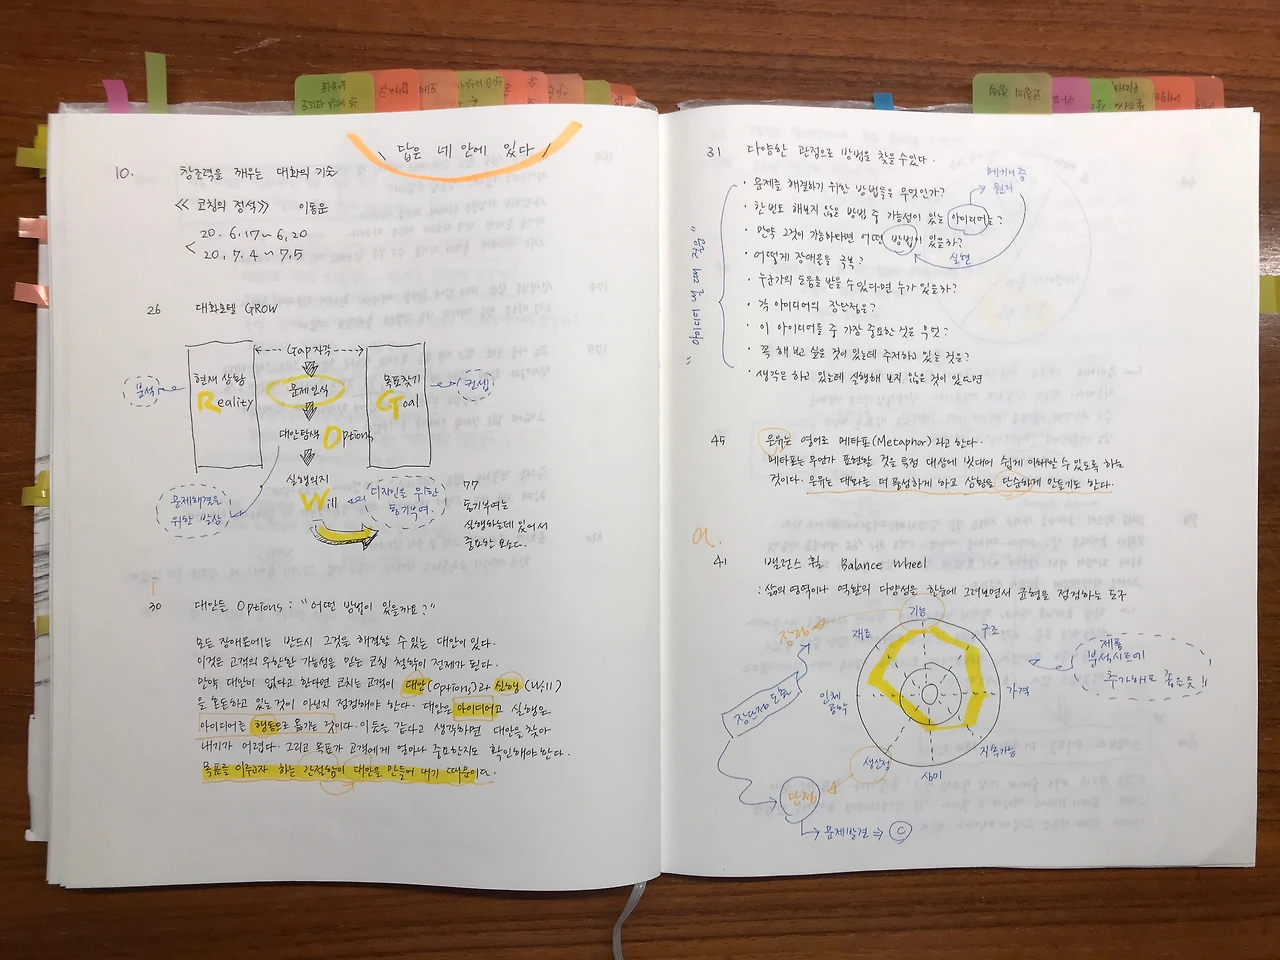 답은 네 안에 있다
10. 창조력을 깨우는 대화의 기술
≪ 코칭의 정석 ≫ 이동운
20. 6. 17 ~ 6. 20
20. 7. 4 ~ 7. 5
26 대화모델 GROW
Gap 자각
현재 상황
Reality
분석
문제인식
목표찾기
Goal
컨셉
대안탐색 Options
실행의지
Will
문제해결을
위한 발상
디자인을 위한
동기부여
77
동기부여는
실행하는데 있어서
중요한 요소다.
30 대안들 Options : "어떤 방법이 있을까요?"
모든 장애물에는 반드시 그것을 해결할 수 있는 대안이 있다.
이것은 고객의 무한한 가능성을 믿는 코칭 철학이 전제가 된다.
만약 대안이 없다고 한다면 코치는 고객이 대안(Options)과 실행(Will)
을 혼동하고 있는 것이 아닌지 점검해야 한다. 대안은 아이디어고 실행은
아이디어를 행동으로 옮기는 것이다. 이 둘을 같다고 생각하면 대안을 찾아
내기가 어렵다. 그리고 목표가 고객에게 얼마나 중요한지도 확인해야 한다.
목표를 이루고자 하는 간절함이 대안을 만들어 내기 때문이다.
31 다양한 관점으로 방법을 찾을 수 있다.
· 문제를 해결하기 위한 방법들은 무엇인가?
· 한번도 해보지 않은 방법 중 가능성이 있는 아이디어는?
· 만약 그것이 가능하다면 어떤 방법이 있을까?
· 어떻게 장애물을 극복?
· 누군가의 도움을 받을 수 있다면 누가 있을까?
· 각 아이디어의 장단점은?
· 이 아이디어들 중 가장 중요한 것은 무엇?
· 꼭 해 보고 싶은 것이 있는데 주저하고 있는 것은?
· 생각은 하고 있는데 실행해 보지 않은 것이 있다면
메커니즘
원리
실현
45 은유는 영어로 메타포(Metaphor)라고 한다.
메타포는 무언가 표현할 것을 특정 대상에 빗대어 쉽게 이해할 수 있도록 하는
것이다. 은유는 대화를 더 풍성하게 하고 상황을 단순하게 만들기도 한다.
a.
41 밸런스 휠 Balance Wheel
: 삶의 영역이나 역할의 다양성을 한눈에 그려보면서 균형을 점검하는 도구
기능
구조
가격
지속가능
심미
생산성
인체
공학
재료
장점
장단점 도출
단점
문제발견 ⇒ C
제품
분석시트에
추가해도 좋은듯!!